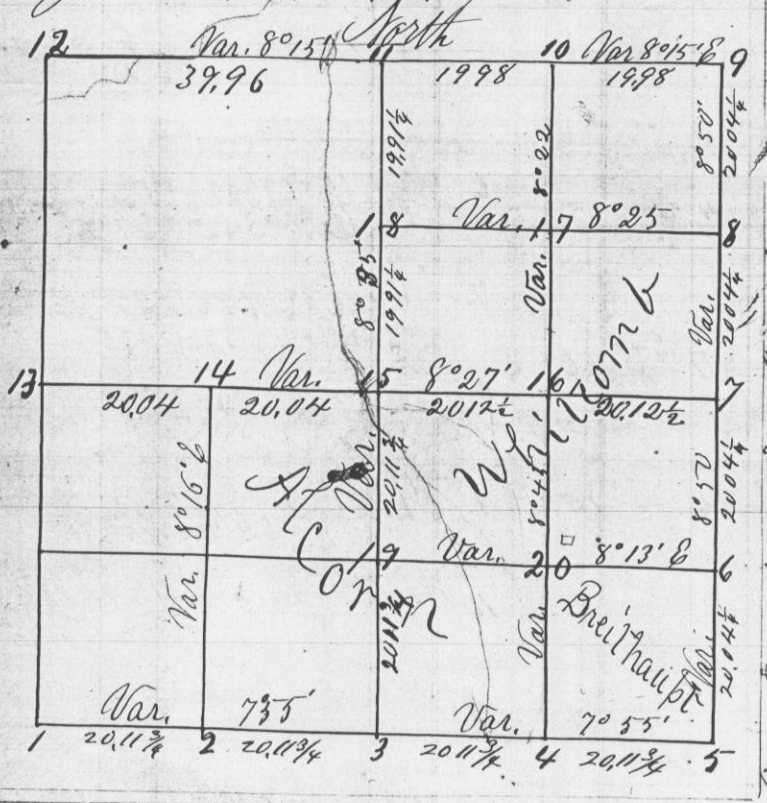 North
12 Var. 8°15' 11 10 Var 8°15' E 9
39,96 1998 19,98
19,91¼ 8°22 8°50' 20 04¼
18 Var. 17 8°25 8
8°35' 19 91¼ Var. Var. 20 04¼
13 14 Var. 15 8°27' 16 7
20,04 20,04 20 12½ 20,12½
Var. 8°16' E Var. 20,11¾ 8°45' 8°50' 20 04¼
Corn
Witcomb
19 Var. 20 8°13' E 6
20 11¾ Var. Breithaupt Var. 20,04¼
Var. 7°35' Var. 7°55'
1 20,11¾ 2 20,11¾ 3 20 11¾ 4 20,11¾ 5